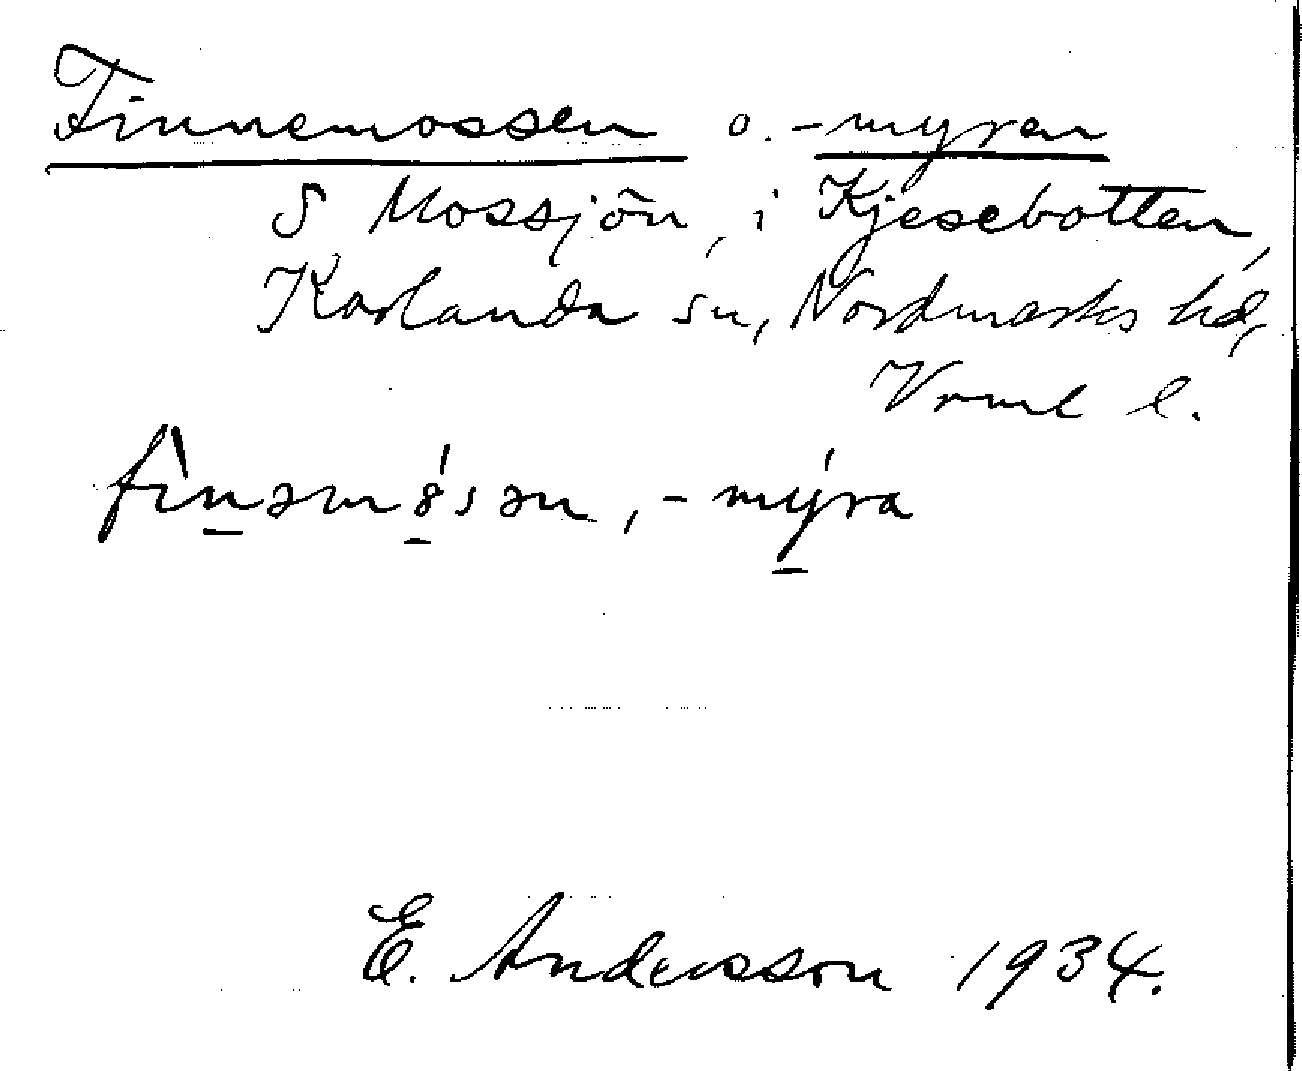 Finnemossen o. -myren
S Mossjön, i Kjesebotten,
Karlanda sn, Nordmarks hd,
Vrml l.
fìn̠əmó̠sən, -mý̠ra
E. Andersson 1934.